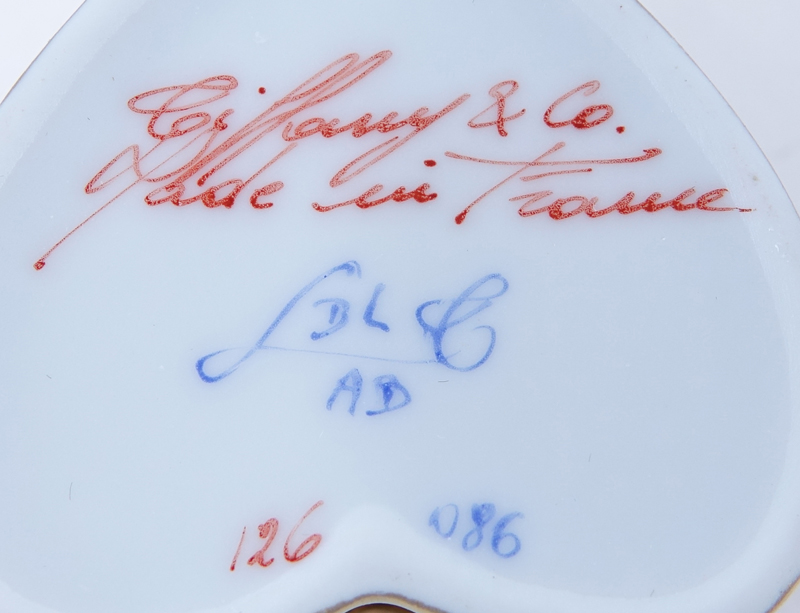 Tiffany & Co.
Made in France
L DL C
AD
126 086